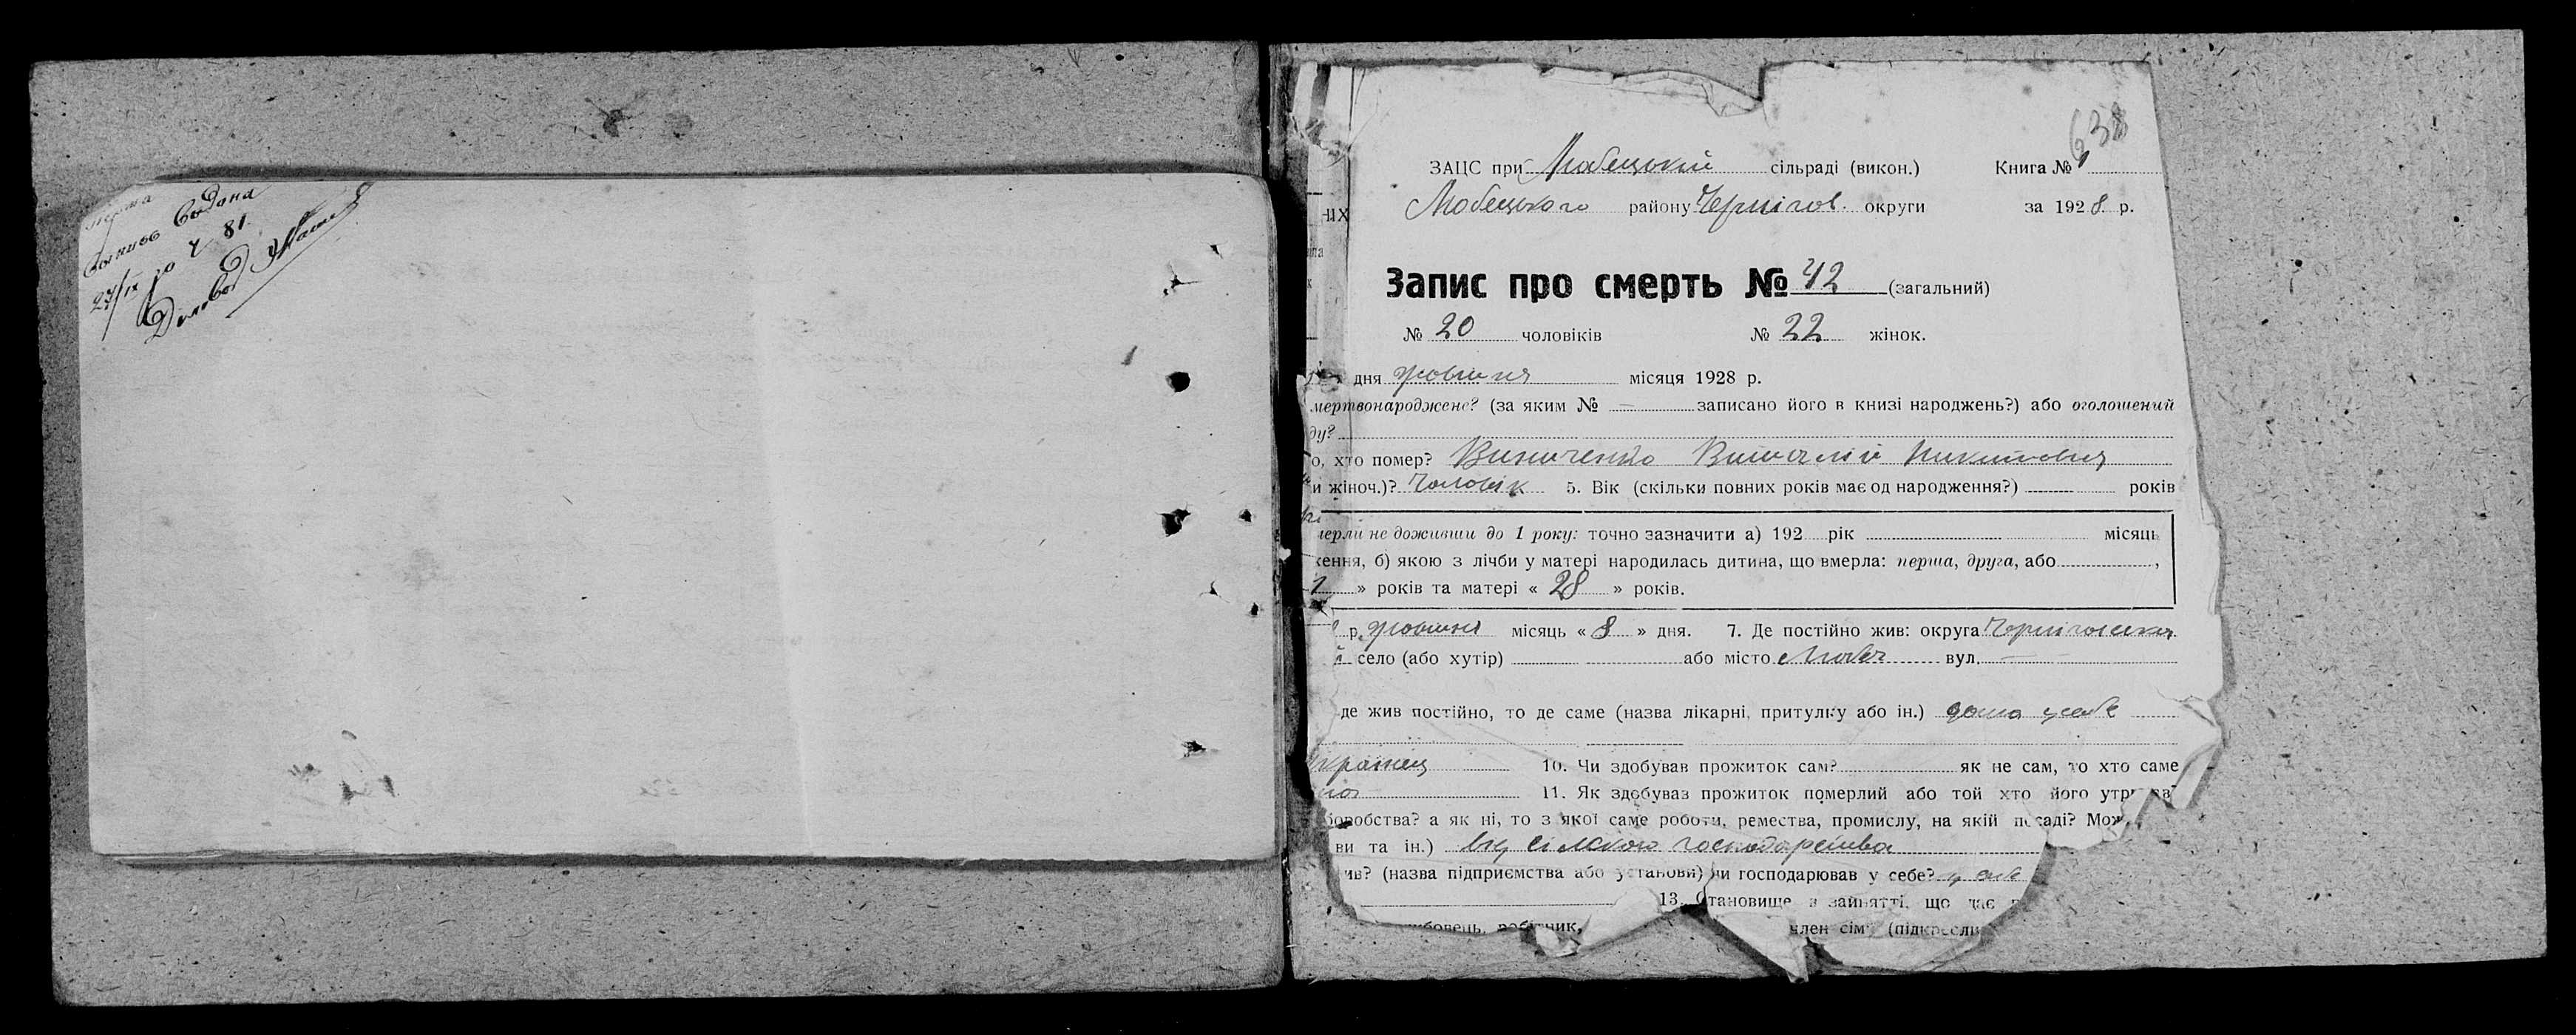 27/IX по Ч 81.
Діловод
638
ЗАЦС при Любецькій сільраді (викон.) Книга № 1
Любецького району Чернігов. округи за 1928 р.
Запис про смерть № 42 (загальний)
№ 20 чоловіків № 22 жінок.
дня жовтня місяця 1928 р.
мертвонароджене? (за яким № — записано його в книзі народжень?) або оголошений
ду?
о, хто помер? Винниченко Виталій Никитович
и жіноч.)? Чоловік 5. Вік (скільки повних років має од народження?) років
мерли не доживши до 1 року: точно зазначити а) 192 рік місяць
ження, б) якою з лічби у матері народилась дитина, що вмерла: перша, друга, або ,
1 » років та матері « 28 » років.
р. жовтня місяць « 8 » дня. 7. Де постійно жив: округа Чернігівська
село (або хутір) або місто Любеч вул. —
де жив постійно, то де саме (назва лікарні, притулку або ін.) дома у себе
Українец 10. Чи здобував прожиток сам? як не сам, то хто саме
11. Як здобував прожиток померлий або той хто його утр
боробства? а як ні, то з якої саме роботи, ремества, промислу, на якій посаді? Мож
ви та ін.) від сільского господарства
ив? (назва підприємства або установи) чи господарював у себе? у себе
13. Становище в зайнятті, що дає п
бовець, робітник, член сім' (підкресли